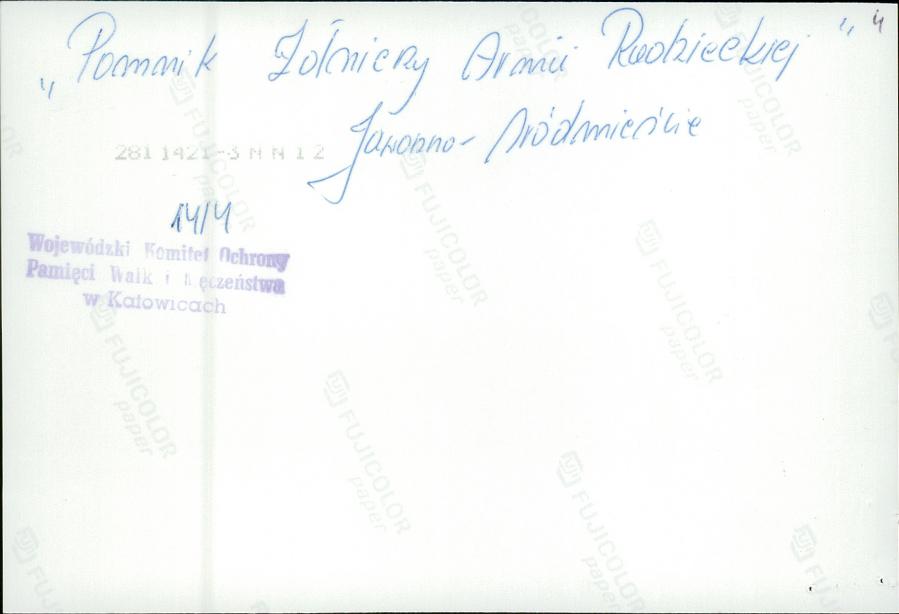 4
„Pomnik Żołnierzy Armii Radzieckiej"
Jaworzno - Śródmieście
2811421-3 N N 1 2
14/4
Wojewódzki Komitet Ochrony
Pamięci Walk i Męczeństwa
w Katowicach
FUJICOLOR
paper